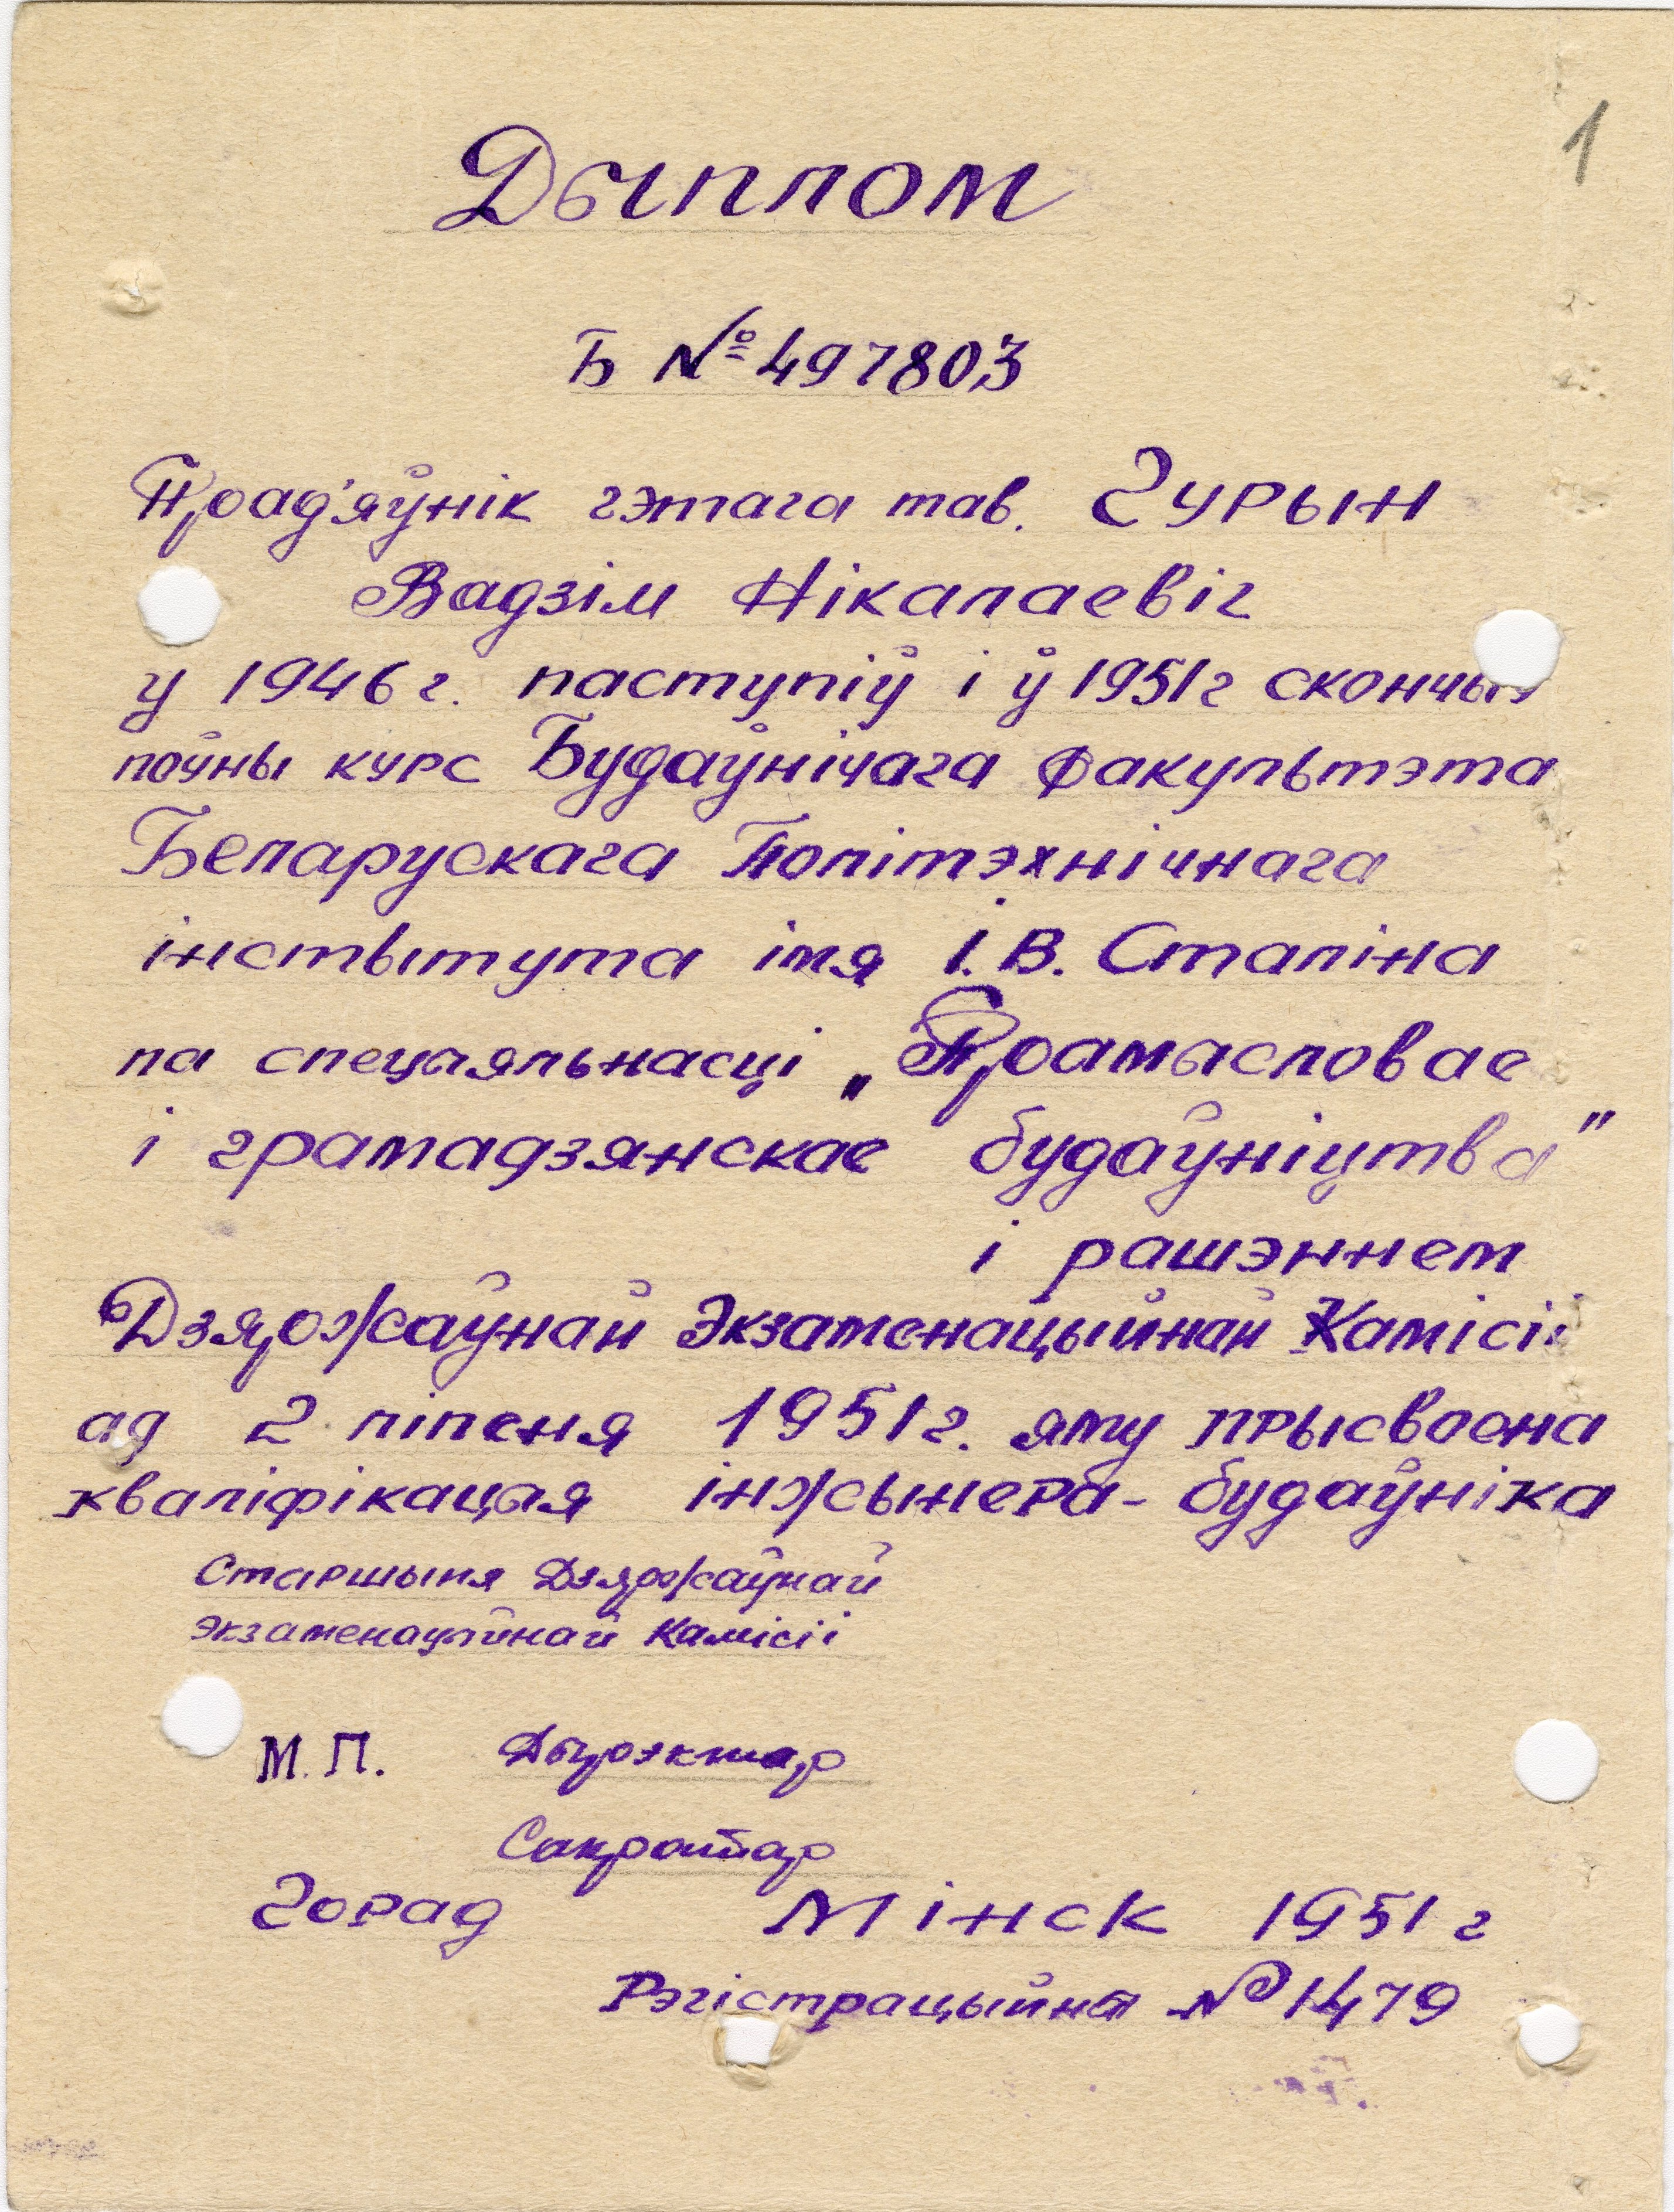 1
Дыплом
Б № 497803
Прад'яўнік гэтага тав. Гурын
Вадзім Нікалаевіч
у 1946 г. паступіў і ў 1951 г скончыў
поўны курс Будаўнічага факультэта
Беларускага Політэхнічнага
інстытута імя І. В. Сталіна
па спецыяльнасці „Прамысловае
і грамадзянскае будаўніцтва"
і рашэннем
Дзяржаўнай Экзаменацыйнай Камісіі
ад 2 ліпеня 1951 г. яму прысвоена
кваліфікацыя інжынера-будаўніка
Старшыня Дзяржаўнай
Экзаменацыйнай Камісіі
М. П. Дырэктар
Сакратар
Горад Мінск 1951 г
Рэгістрацыйны № 1479